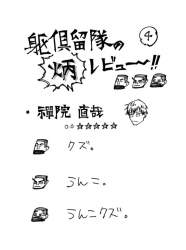 躯倶留隊の ④
炳レビュー〜!!
・禪院 直哉
○●☆☆☆☆☆
クズ。
うんこ。
うんこクズ。